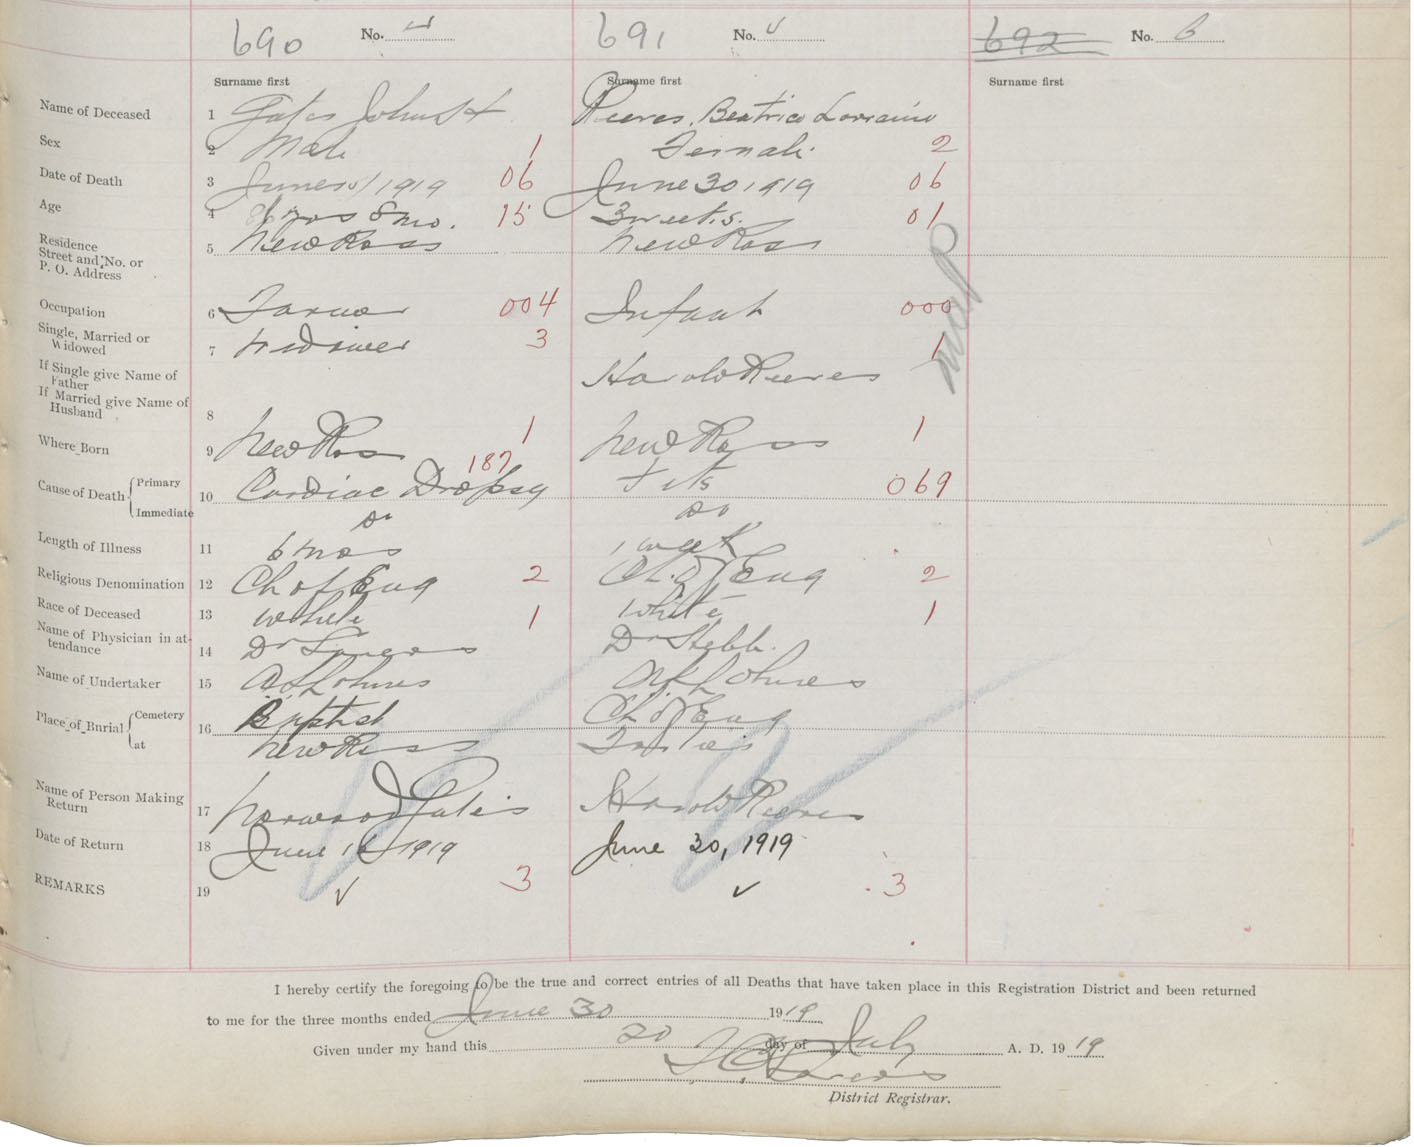 690 No. 4 691 No. 5 692 No. 6
Surname first Surname first Surname first
Name of Deceased 1 Gates John H Reeves, Beatrice Lorraine
Sex 2 Male 1 Female 2
Date of Death 3 June 1919 06 June 30 1919 06
Age 4 8 mo. 15 3 weeks. 01
Residence
Street and No. or
P. O. Address 5 New Ross New Ross
Occupation 6 Farmer 004 Infant 000
Single, Married or
Widowed 7 Widower 3 1
If Single give Name of
Father Harold Reeves
If Married give Name of
Husband 8
Where Born 9 New Ross 1 New Ross 1
187
Cause of Death { Primary 10 Cardiac Dropsy Fits 069
Immediate Do Do
Length of Illness 11 6 mos 1 week
Religious Denomination 12 Ch of Eng 2 Ch. of Eng 2
Race of Deceased 13 White 1 White 1
Name of Physician in at-
tendance 14 Dr Dr Hebb.
Name of Undertaker 15
Place of Burial { Cemetery 16 Baptist Ch of Eng
at New Ross
Name of Person Making
Return 17 Norwood Gates Harold Reeves
Date of Return 18 June 1919 June 30, 1919
REMARKS 19 ✓ 3 ✓ 3
I hereby certify the foregoing to be the true and correct entries of all Deaths that have taken place in this Registration District and been returned
to me for the three months ended June 30 1919
Given under my hand this 20 day of July A. D. 1919
District Registrar.